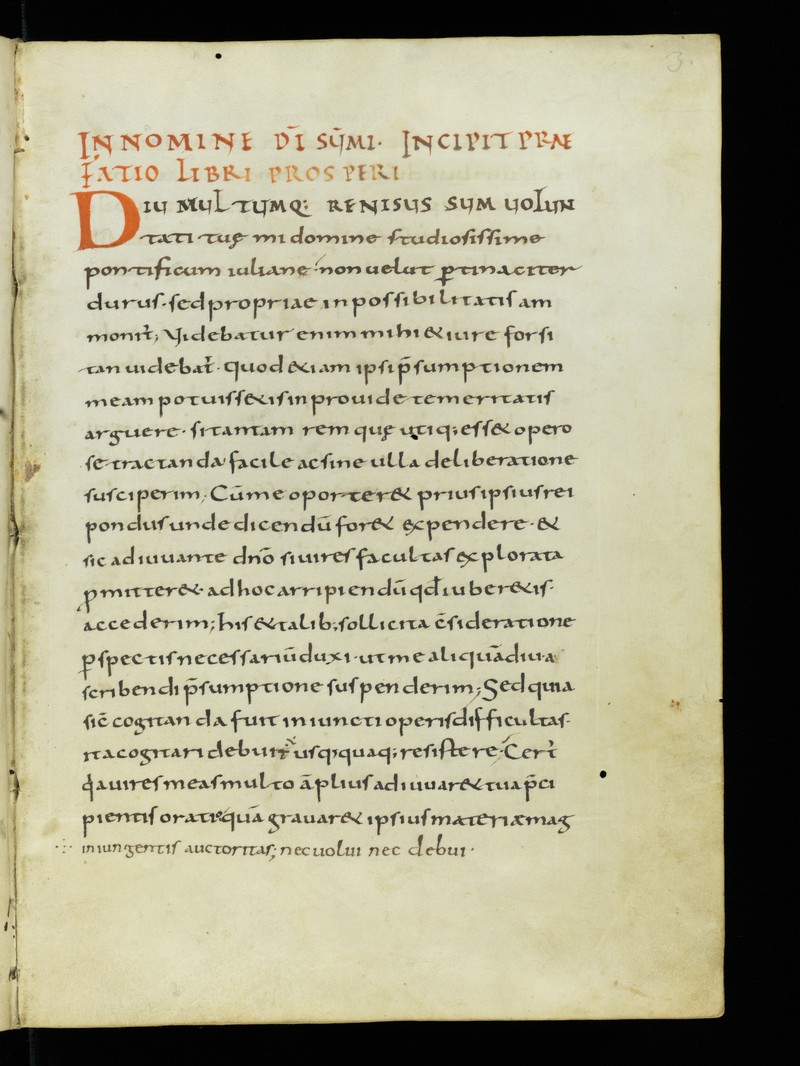 3.
IN NOMINE DĪ SŪMI· INCIPIT PRAE
FATIO LIBRI PROSPERI
DIU MULTUMQ: RENISUS SUM UOLUN
tati tuę mi domine studiosissime
pontificum iuliane· non uelut ꝑtinaciter
durus· sed propriae inpossibilitatis am
monit̄; Videbatur enim mihi & iure forsi
tan uidebat̄· quod & iam ipsi p̄sumptionem
meam potuiss& is inprouidę temeritatis
arguere· si tantam rem quę utiq; ess& opero
se tractanda facile ac sine ulla deliberatione
susciperim; Cū me oporter& prius ipsius rei
pondus unde dicendū for& expendere· &
sic adiuuante dn̄o si uires facultas explorata
ꝓmitter&· ad hoc arripiendū qd̄ iuber&is·
accederim; his & talib; sollicita c̄sideratione
ꝑspectis necessariū duxi· ut me aliquādiu a
scribendi p̄sumptione suspenderim; Sed quia
sic̄ cogitanda fuit iniuncti operis difficultas·
ita cogitari debuit usq;quaq; resistere· Cert̄
q̄a uires meas multo āplius adiuuar& tua p̄ci
pientis oratio quā grauar& ipsius materiæ mag
iniungentis auctoritas; nec uolui nec debui·